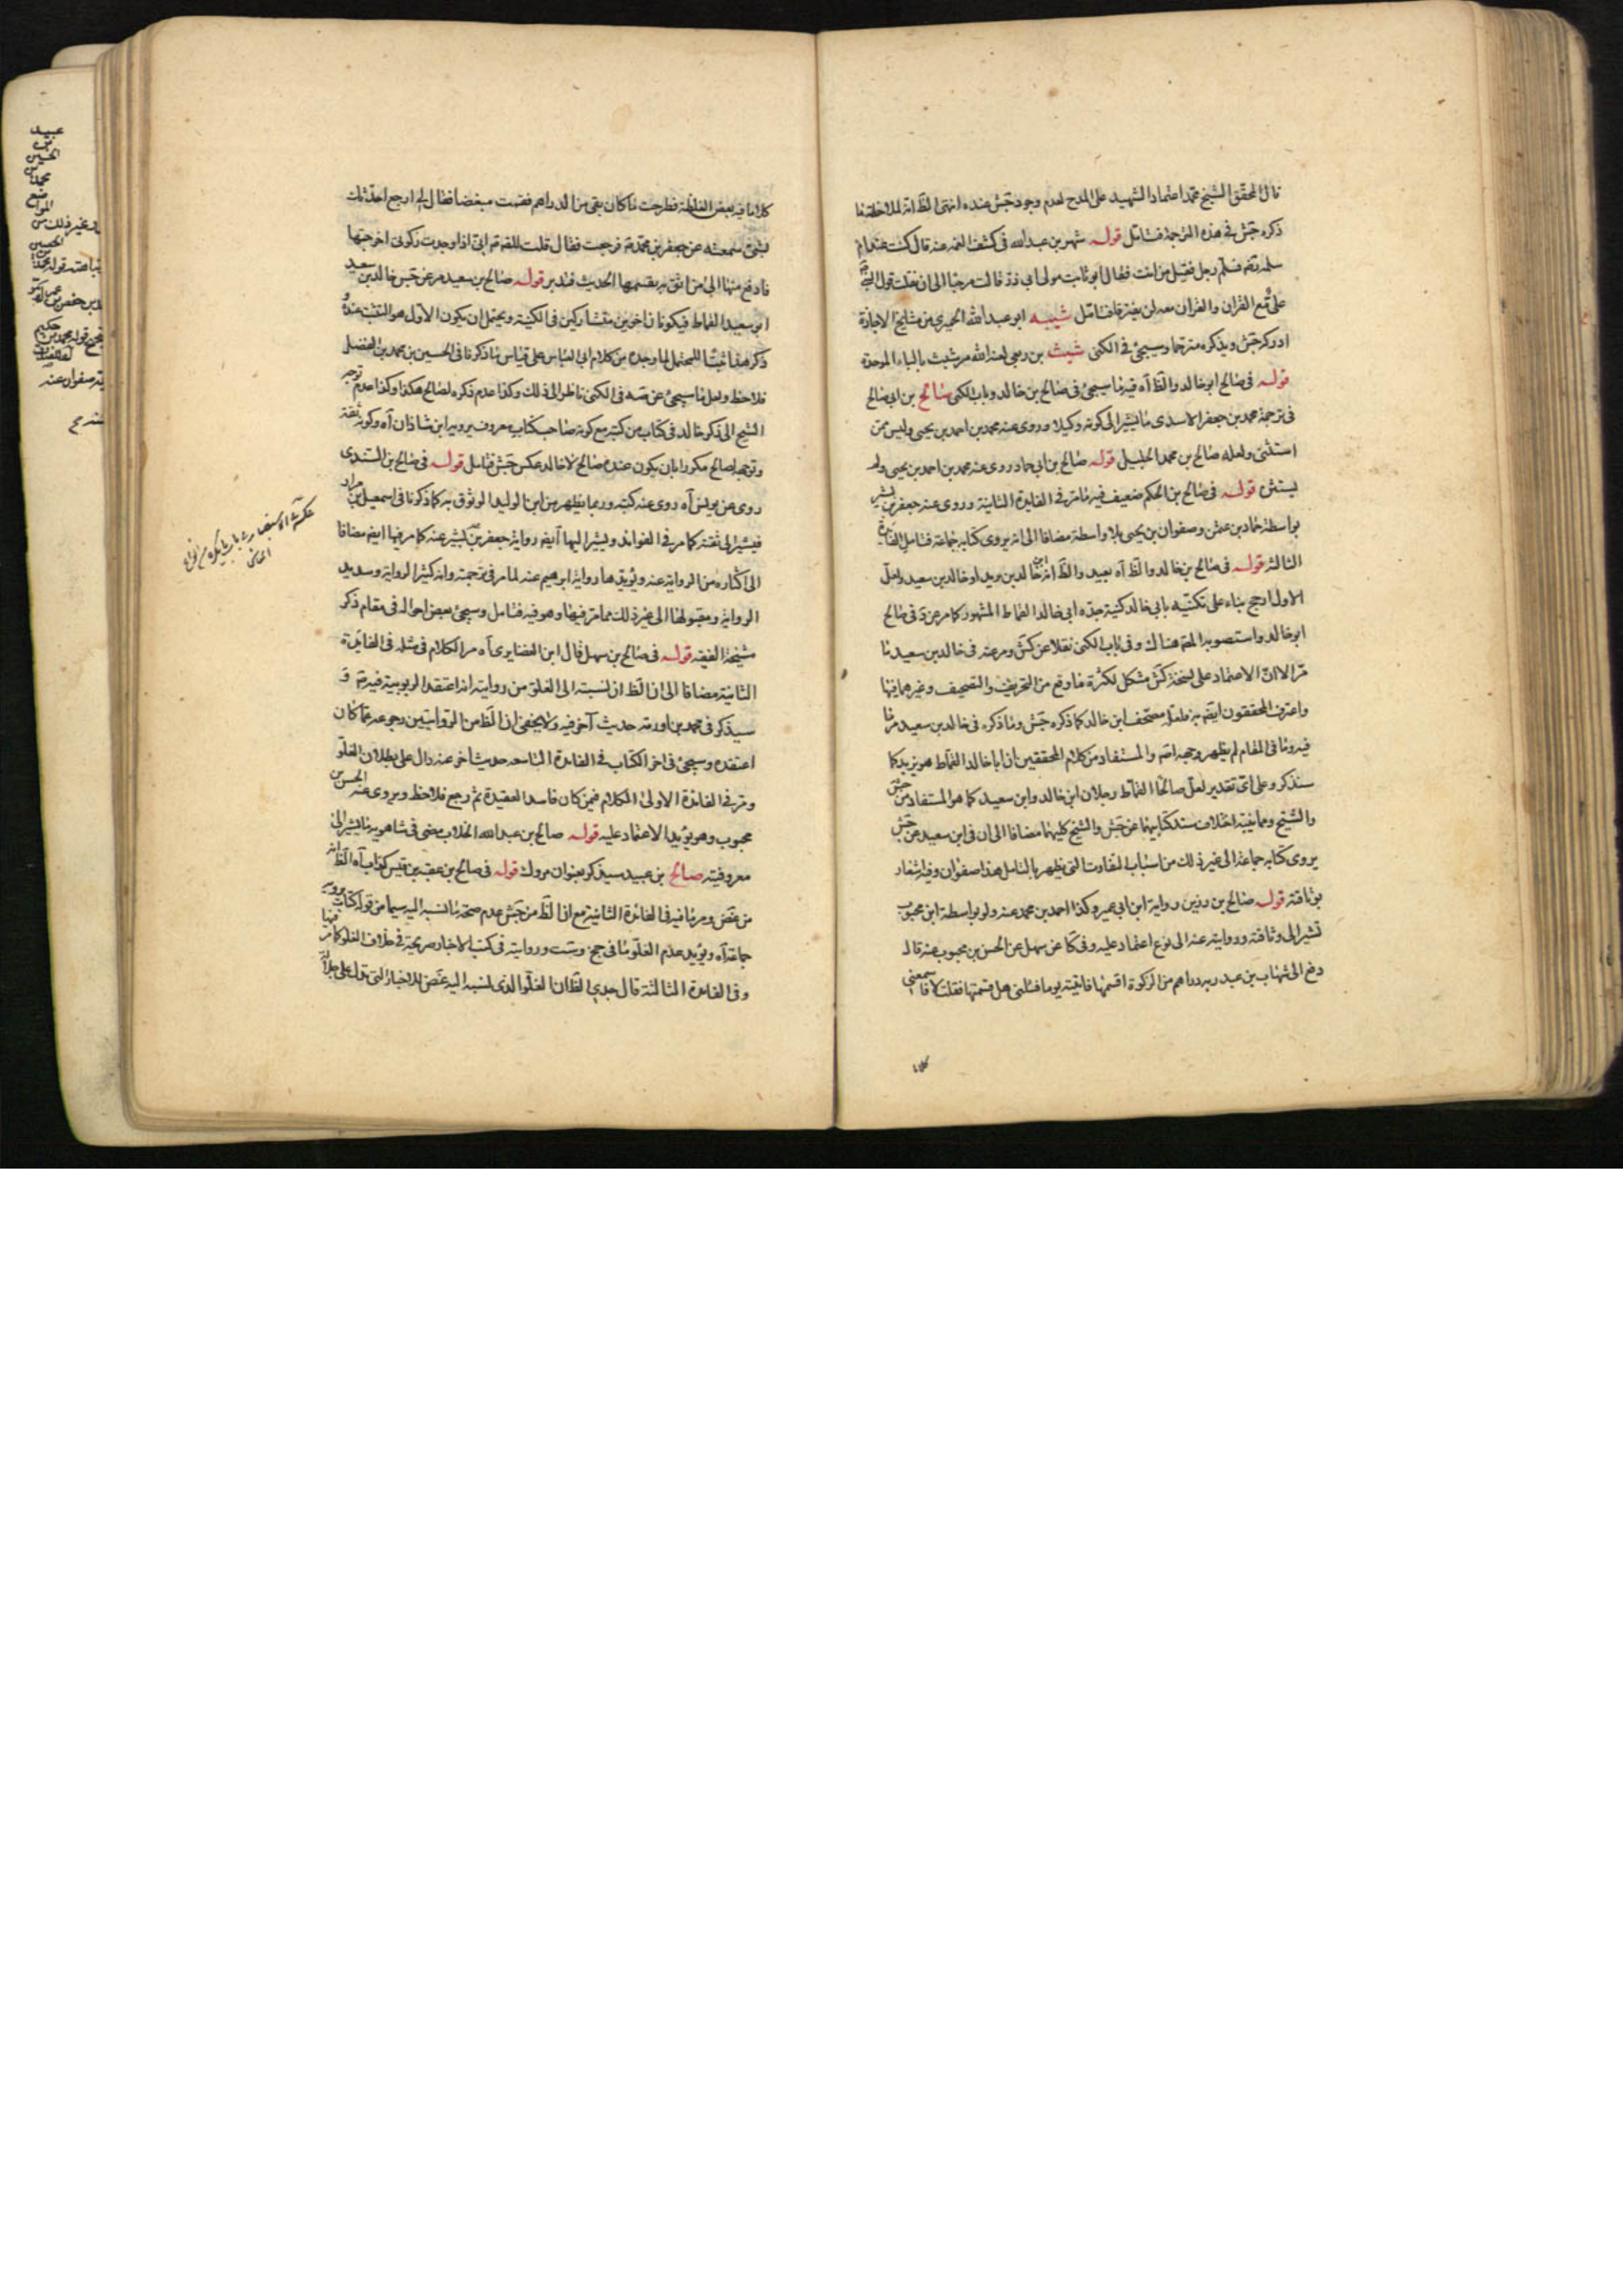 قال المحقق الشيخ محمد اعتماد الشهيد على المدح لعدم وجود جش عنده انتهى الظ انه لملاحظة ما
ذكره جش في هذه الترجمة فتامل قوله شهر بن عبدالله في كشف الغمه عنه قال كنت عند ام
سلمه رضه فسلم رجل فقيل من انت فقال ابو ثابت مولى ابي ذر قالت مرحبا الى ان نقلت قول النبي
على مع القران والقران معه لن يفترقا فتامل شيبه ابو عبد الله الحميري من مشايخ الاجازة
ادركه جش ويذكره مترحما وسيجئ في الكنى شيث بن ربعي لعنه الله مر شبث بالباء الموحدة
قوله في صالح ابو خالد والظ آه فيه ما سيجئ في صالح بن خالد وباب الكنى صالح بن ابي صالح
في ترجمة محمد بن جعفر الاسدي ما يشير الى كونه وكيلا وروى عنه محمد بن احمد بن يحيى وليس ممن
استثنى ولعله صالح بن محمد الجليل قوله صالح بن ابي حماد روى عنه محمد بن احمد بن يحيى ولم
يستثن قوله في صالح بن الحكم ضعيف فيه ما مر في الفايدة الثانية وروى عنه جعفر بن بشير
بواسطة حماد بن عثمن وصفوان بن يحيى بلا واسطة مضافا الى انه يروي كتابه جماعة فتامل الفايدة
الثالثه قوله في صالح بن خالد والظ آه بعيد والظ انه خالد بن يزيد او خالد بن سعيد ولعل
الاول ارجح بناء على تكنيه بابي خالد كنية جده ابي خالد القماط المشهور كما مر عن د في صالح
ابو خالد واستصوبه المص هناك وفي باب الكنى نقلا عن كش ومر عنه في خالد بن سعيد ما
مر الا ان الاعتماد على نسخة كش مشكل لكثرة ما وقع من التحريف والتصحيف وغيرهما فيها
واعترف المحققون ايضه به فلعله مصحف ابن خالد كما ذكره جش وما ذكره في خالد بن سعيد مر ما
فيه وما في المقام لم يظهر وجهه اصه والمستفاد من كلام المحققين ان ابا خالد القماط هو يزيد كما
سنذكر وعلى اي تقدير لعل صالحا القماط رجلان ابن خالد وابن سعيد كما هو المستفاد من جش
والشيخ ومما ينبه اختلاف سند كتابيهما عن جش والشيخ كليهما مضافا الى ان في ابن سعيد عن جش
يروي كتابه جماعة الى غير ذلك من اسباب التفاوت التي يظهر بالتامل هذا صفوان وفيه اشعار
بوثاقته قوله صالح بن رزين رواية ابن ابي عمير وكذا احمد بن محمد عنه ولو بواسطة ابن محبوب
تشير الى وثاقته وروايته عنه الى نوع اعتماد عليه وفي كا عن سهل عن الحسن بن محبوب عنه قال
دفع الى شهاب بن عبد ربه دراهم من الزكوة اقسمها فاتيته يوما فسئلني هل قسمتها فقلت لا فاسمعني
كلاما
كلاما فيه بعض الغلظة فطرحت ما كان بقي من الدراهم فقمت مغضبا فقال لي ارجع احدثك
بشئ سمعته عن جعفر بن محمد ع فرجعت فقال قلت للصه ع اني اذا وجدت زكوتى اخرجتها
فادفع منها الى من اثق به يقسمها الحديث فتدبر قوله صالح بن سعيد مر عن جش خالد بن سعيد
ابو سعيد القماط فيكونان اخوين متشاركين في الكنية ويحتمل ان يكون الاول هو الثبت عنده و
ذكر هذا ثبتا للمحتمل لما وجده من كلام ابي العباس على قياس ما ذكرنا في الحسين بن محمد بن الفضل
فلاحظ ولعل ما سيجئ عن صه في الكنى ناظر الى ذلك وكذا عدم ذكره لصالح هكذا وكذا عدم توجه
الشيخ الى ذكر خالد في كتاب من كتبه مع كونه صاحب كتاب معروف يرويه ابن شاذان آه وكونه ثقة
وتوجهه لصالح مكررا بان يكون عنده صالح لا خالد عكس جش فتامل قوله في صالح بن السندي
روى عن يونس آه روى عنه كتبه وربما يظهر من ابن الوليد الوثوق به كما ذكرنا في اسمعيل بن مرار
فيشير الى ثقته كما مر في الفوائد ويشير اليها ايضه رواية جعفر بن بشير عنه كما مر فيها ايضه مضافا
الى اكثاره من الرواية عنه ويؤيدها رواية ابرهيم عنه لما مر في ترجمته وانه كثير الرواية وسديد
الرواية ومقبولها الى غير ذلك مما مر فيها وهو فيه فتامل وسيجئ بعض احواله في مقام ذكر
مشيخة الفقيه قوله في صالح بن سهل قال ابن الغضايري آه مر الكلام في مثله في الفائدة
الثانية مضافا الى ان الظ ان نسبته الى الغلو من روايته انه اعتقد الربوبية فيه ع و
سيذكر في محمد بن اورمه حديث آخر فيه ولا يخفى ان الظ من الروايتين رجوعه عما كان
اعتقده وسيجئ في اخر الكتاب في الفايدة التاسعه حديث اخر عنه دال على بطلان الغلو
ومر في الفائدة الاولى الكلام فيمن كان فاسد العقيدة ثم رجع فلاحظ ويروي عنه الحسن بن
محبوب وهو يؤيد الاعتماد عليه قوله صالح بن عبدالله الخلاب مضى في شاهويه ما يشير الى
معروفيته صالح بن عبيد سيذكر بعنوان مروك قوله في صالح بن عقبة بن قيس كذاب آه الظ انه
من غض ومر ما فيه في الفائدة الثانية مع ان الظ من جش عدم صحة ما نسبه اليه سيما من قوله كتاب يرويه
جماعة آه ويؤيد عدم الغلو ما في جخ وست وروايته في كتب الاخبار صريحة في خلاف الغلو كما مر فيها
وفي الفايدة الثالثة قال جدي الظ ان الغلو الذي نسبه اليه غض للاخبار التي تدل على جلالة
عبيد
بن
الحسين
المواضع
وغير ذلك
الحسين